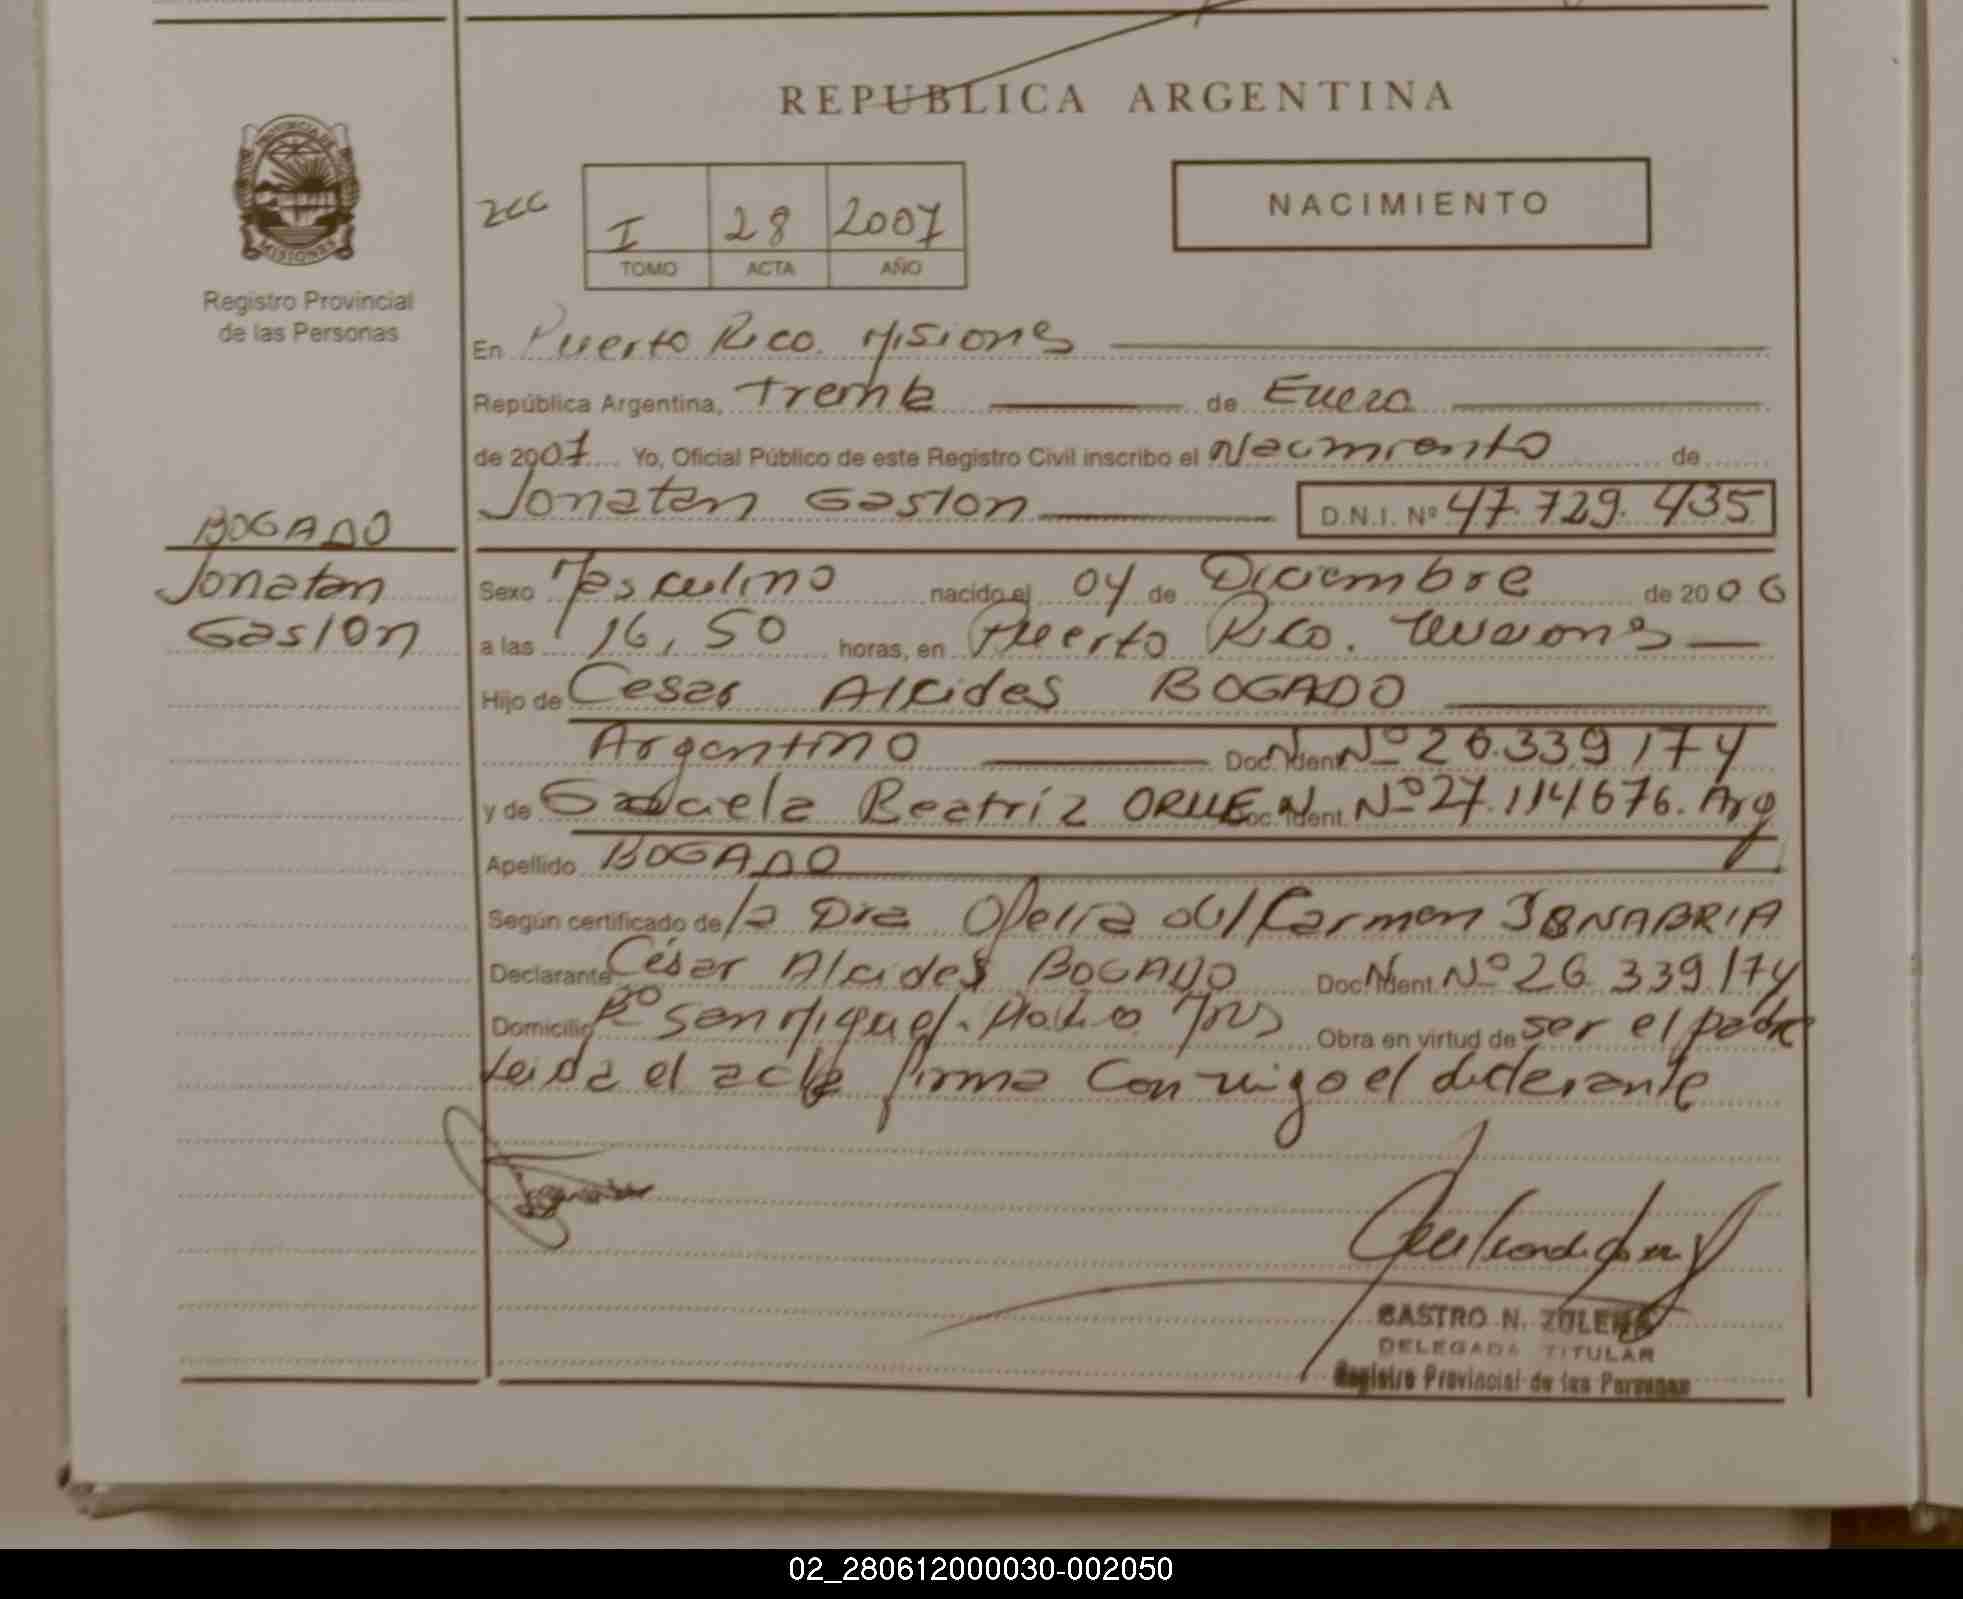 REPUBLICA ARGENTINA
PROVINCIA DE
MISIONES
Registro Provincial
de las Personas
I 28 2007
TOMO ACTA AÑO
NACIMIENTO
En Puerto Rico. Misiones
República Argentina, Treinta de Enero
de 2007 Yo, Oficial Público de este Registro Civil inscribo el Nacimiento de
Jonatan Gaston D.N.I. Nº 47.729.435
BOGADO
Jonatan
Gaston
Sexo Masculino nacido el 04 de Diciembre de 2006
a las 16,50 horas, en Puerto Rico. Misiones
Hijo de Cesar Alcides BOGADO
Argentino Doc. Ident. Nº 26.339174
y de Beatriz ORUE Doc. Ident. Nº 27.114.676. Arg
Apellido BOGADO
Según certificado de la Dra Ofelia del Carmen SANABRIA
Declarante César Alcides BOGADO Doc. Ident. Nº 26.339.174
Domicilio Bº San Miguel. Obra en virtud de ser el padre
Leida el acta firma conmigo el declarante
CASTRO N. ZULEMA
DELEGADA TITULAR
Registro Provincial de las Personas
02_280612000030-002050